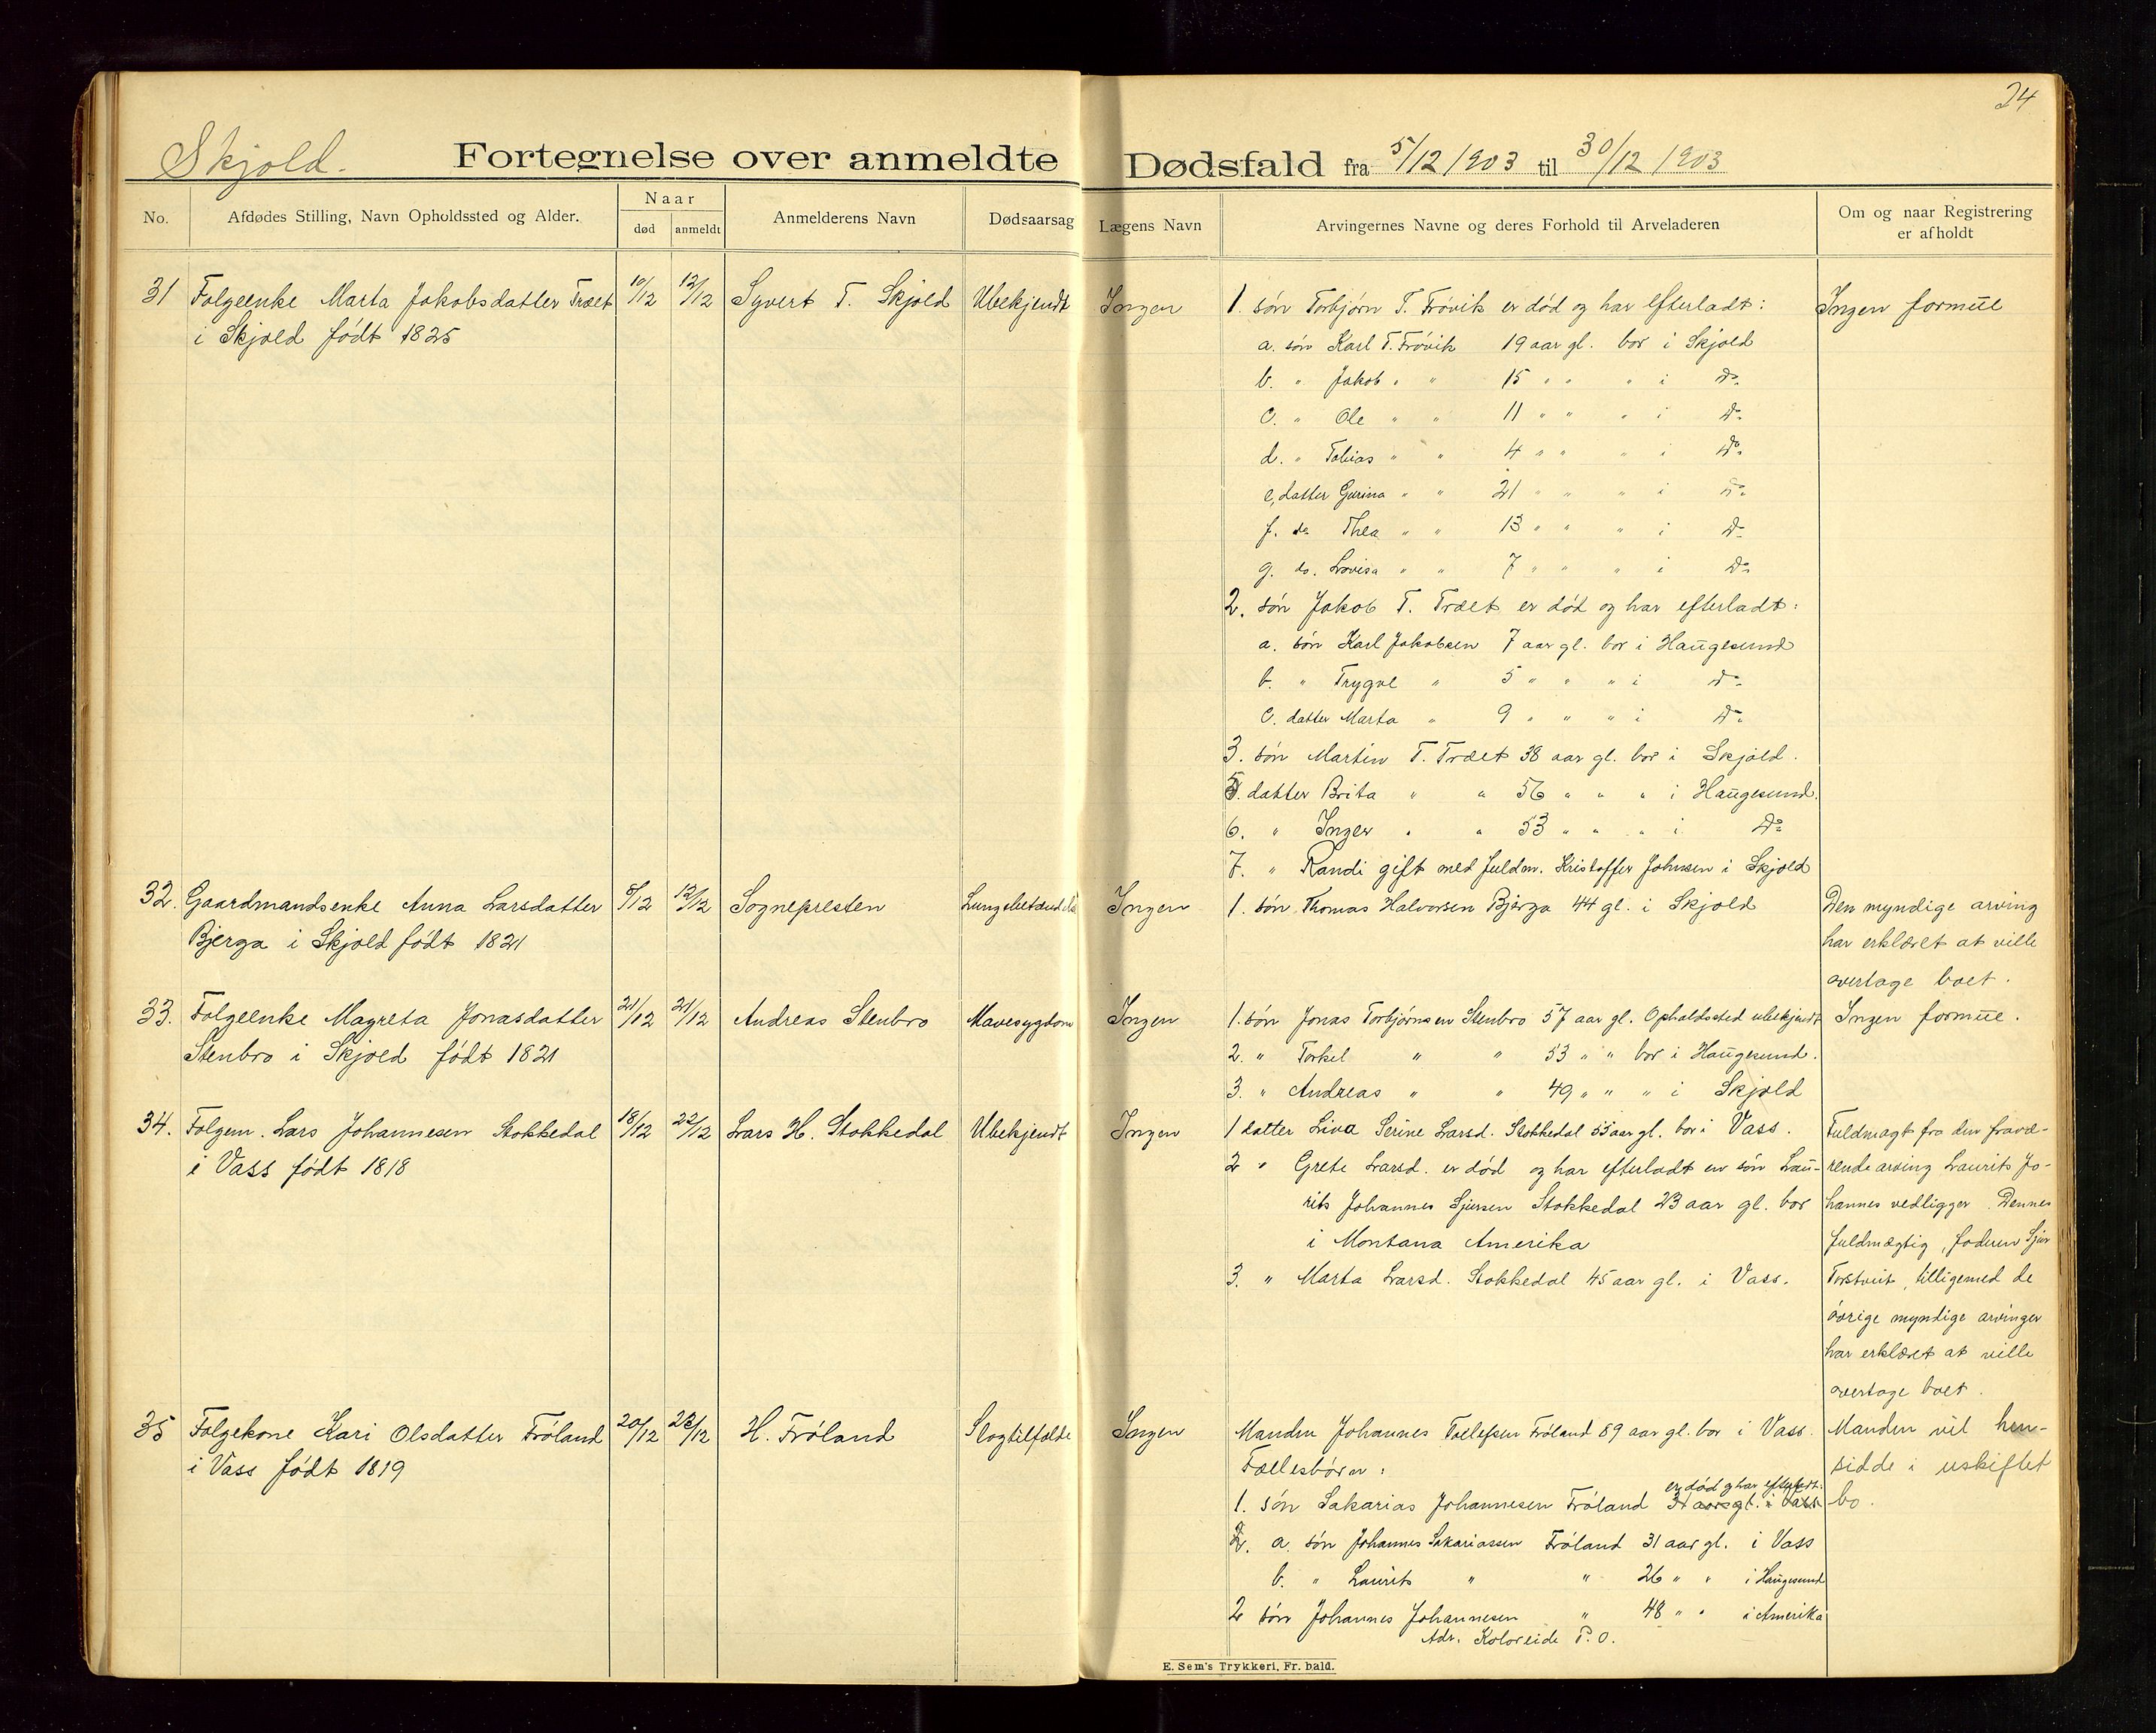 24
Skjold. Fortegnelse over anmeldte Dødsfald fra 5/12 1903 til 30/12 1903
No. Afdødes Stilling, Navn Opholdssted og Alder. Naar død anmeldt Anmelderens Navn Dødsaarsag Lægens Navn Arvingernes Navne og deres Forhold til Arveladeren Om og naar Registrering er afholdt
31 Folgeenke Marta Jakobsdatter Træet 10/12 12/12 Syvert T. Skjold Ubekjendt Ingen 1. søn Torbjørn T. Frøvik er død og har efterladt: Ingen formue
i Skjold født 1825 a. søn Karl T. Frøvik 19 aar gl. bor i Skjold
b. " Jakob " " 15 " " " i Do
c. " Ole " " 11 " " " i Do
d. " Tobias " " 4 " " " i Do
e, datter Gurina " " 21 " " " i Do
f. do Thea " " 13 " " " i Do
g. do. Lovisa " " 7 " " " i Do
2. søn Jakob T. Træet er død og har efterladt:
a. søn Karl Jakobsen 7 aar gl. bor i Haugesund
b. " Trygve " 5 " " " i Do
c. datter Marta " 9 " " " i Do
3. søn Martin T. Træet 38 aar gl. bor i Skjold.
5. datter Brita " " 56 " " " i Haugesund.
6. " Inger " " 53 " " " i Do
7. " Randi gift med fuldm. Kristoffer Johnsen i Skjold
32. Gaardmandsenke Anna Larsdatter 5/12 12/12 Sognepresten Lungebetændelse Ingen 1. søn Thomas Halvorsen Bjerga 44 gl. i Skjold Den myndige arving
Bjerga i Skjold født 1821 har erklæret at ville
overtage boet.
33. Folgeenke Magreta Jonasdatter 21/12 21/12 Andreas Stenbro Mavesygdom Ingen 1. søn Jonas Torbjørnsen Stenbro 57 aar gl. Opholdssted ubekjendt Ingen formue.
Stenbro i Skjold født 1821 2. " Torkel " " 53 " " bor i Haugesund.
3. " Andreas " " 49 " " " i Skjold
34. Folgem. Lars Johannesen Stokkedal 18/12 22/12 Lars H. Stokkedal Ubekjendt Ingen 1 datter Liva Serine Larsd. Stokkedal 55 aar gl. bor i Vass. Fuldmagt fra den fravæ-
i Vass født 1818 2 " Grete Larsd. er død og har efterladt en søn Lau- rende arving Laurits Jo-
rits Johannes Sjursen Stokkedal 23 aar gl. bor hannes vedligger. Dennes
i Montana Amerika fuldmægtig, faderen Sjur
3. " Marta Larsd. Stokkedal 45 aar gl. i Vass. Torstveit, tilligemed de
øvrige myndige arvinger
har erklæret at ville
overtage boet.
35 Folgekone Kari Olsdatter Frøland 20/12 22/12 H. Frøland Slagtilfælde Ingen Manden Johannes Tollefsen Frøland 89 aar gl. bor i Vass. Manden vil hen-
i Vass født 1819 Fællesbørn: sidde i uskiftet
er død og har efterladt:
1. søn Sakarias Johannesen Frøland 31 aar gl. i Vass bo.
2. a. søn Johannes Sakariassen Frøland 31 aar gl. i Vass
b. " Laurits " " 26 " " i Haugesund
2 søn Johannes Johannesen " 48 " " i Amerika
Adr. Koloreide P.O.
E. Sem's Trykkeri, Fr. hald.